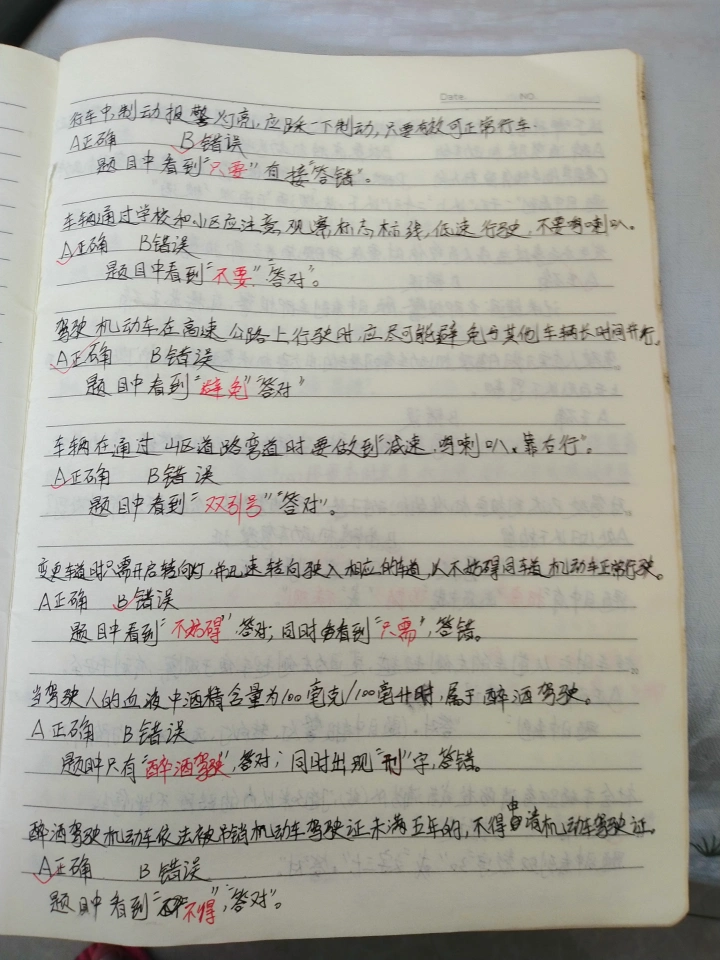 Date. NO.
行车中,制动报警灯亮,应踩一下制动,只要有效可正常行车.
A正确 B错误
题目中看到“只要”直接“答错”。
车辆通过学校和小区应注意观察标志标线,低速行驶,不要鸣喇叭。
A正确 B错误
题目中看到“不要”“答对”。
驾驶机动车在高速公路上行驶时,应尽可能避免与其他车辆长时间并行。
A正确 B错误
题目中看到“避免”“答对”
车辆在通过山区道路弯道时要做到“减速、鸣喇叭、靠右行”。
A正确 B错误
题目中看到“双引号”“答对”。
变更车道时只需开启转向灯,并迅速转向驶入相应的车道,以不妨碍同车道机动车正常行驶。
A正确 B错误
题目中看到“不妨碍”答对;同时看到“只需”,答错。
当驾驶人的血液中酒精含量为100毫克/100毫升时,属于醉酒驾驶。
A正确 B错误
题目中只有“醉酒驾驶”,答对;同时出现“刑”字,答错。
醉酒驾驶机动车依法被吊销机动车驾驶证未满五年的,不得申请机动车驾驶证.
A正确 B错误
题目中看到“不得”,“答对”。